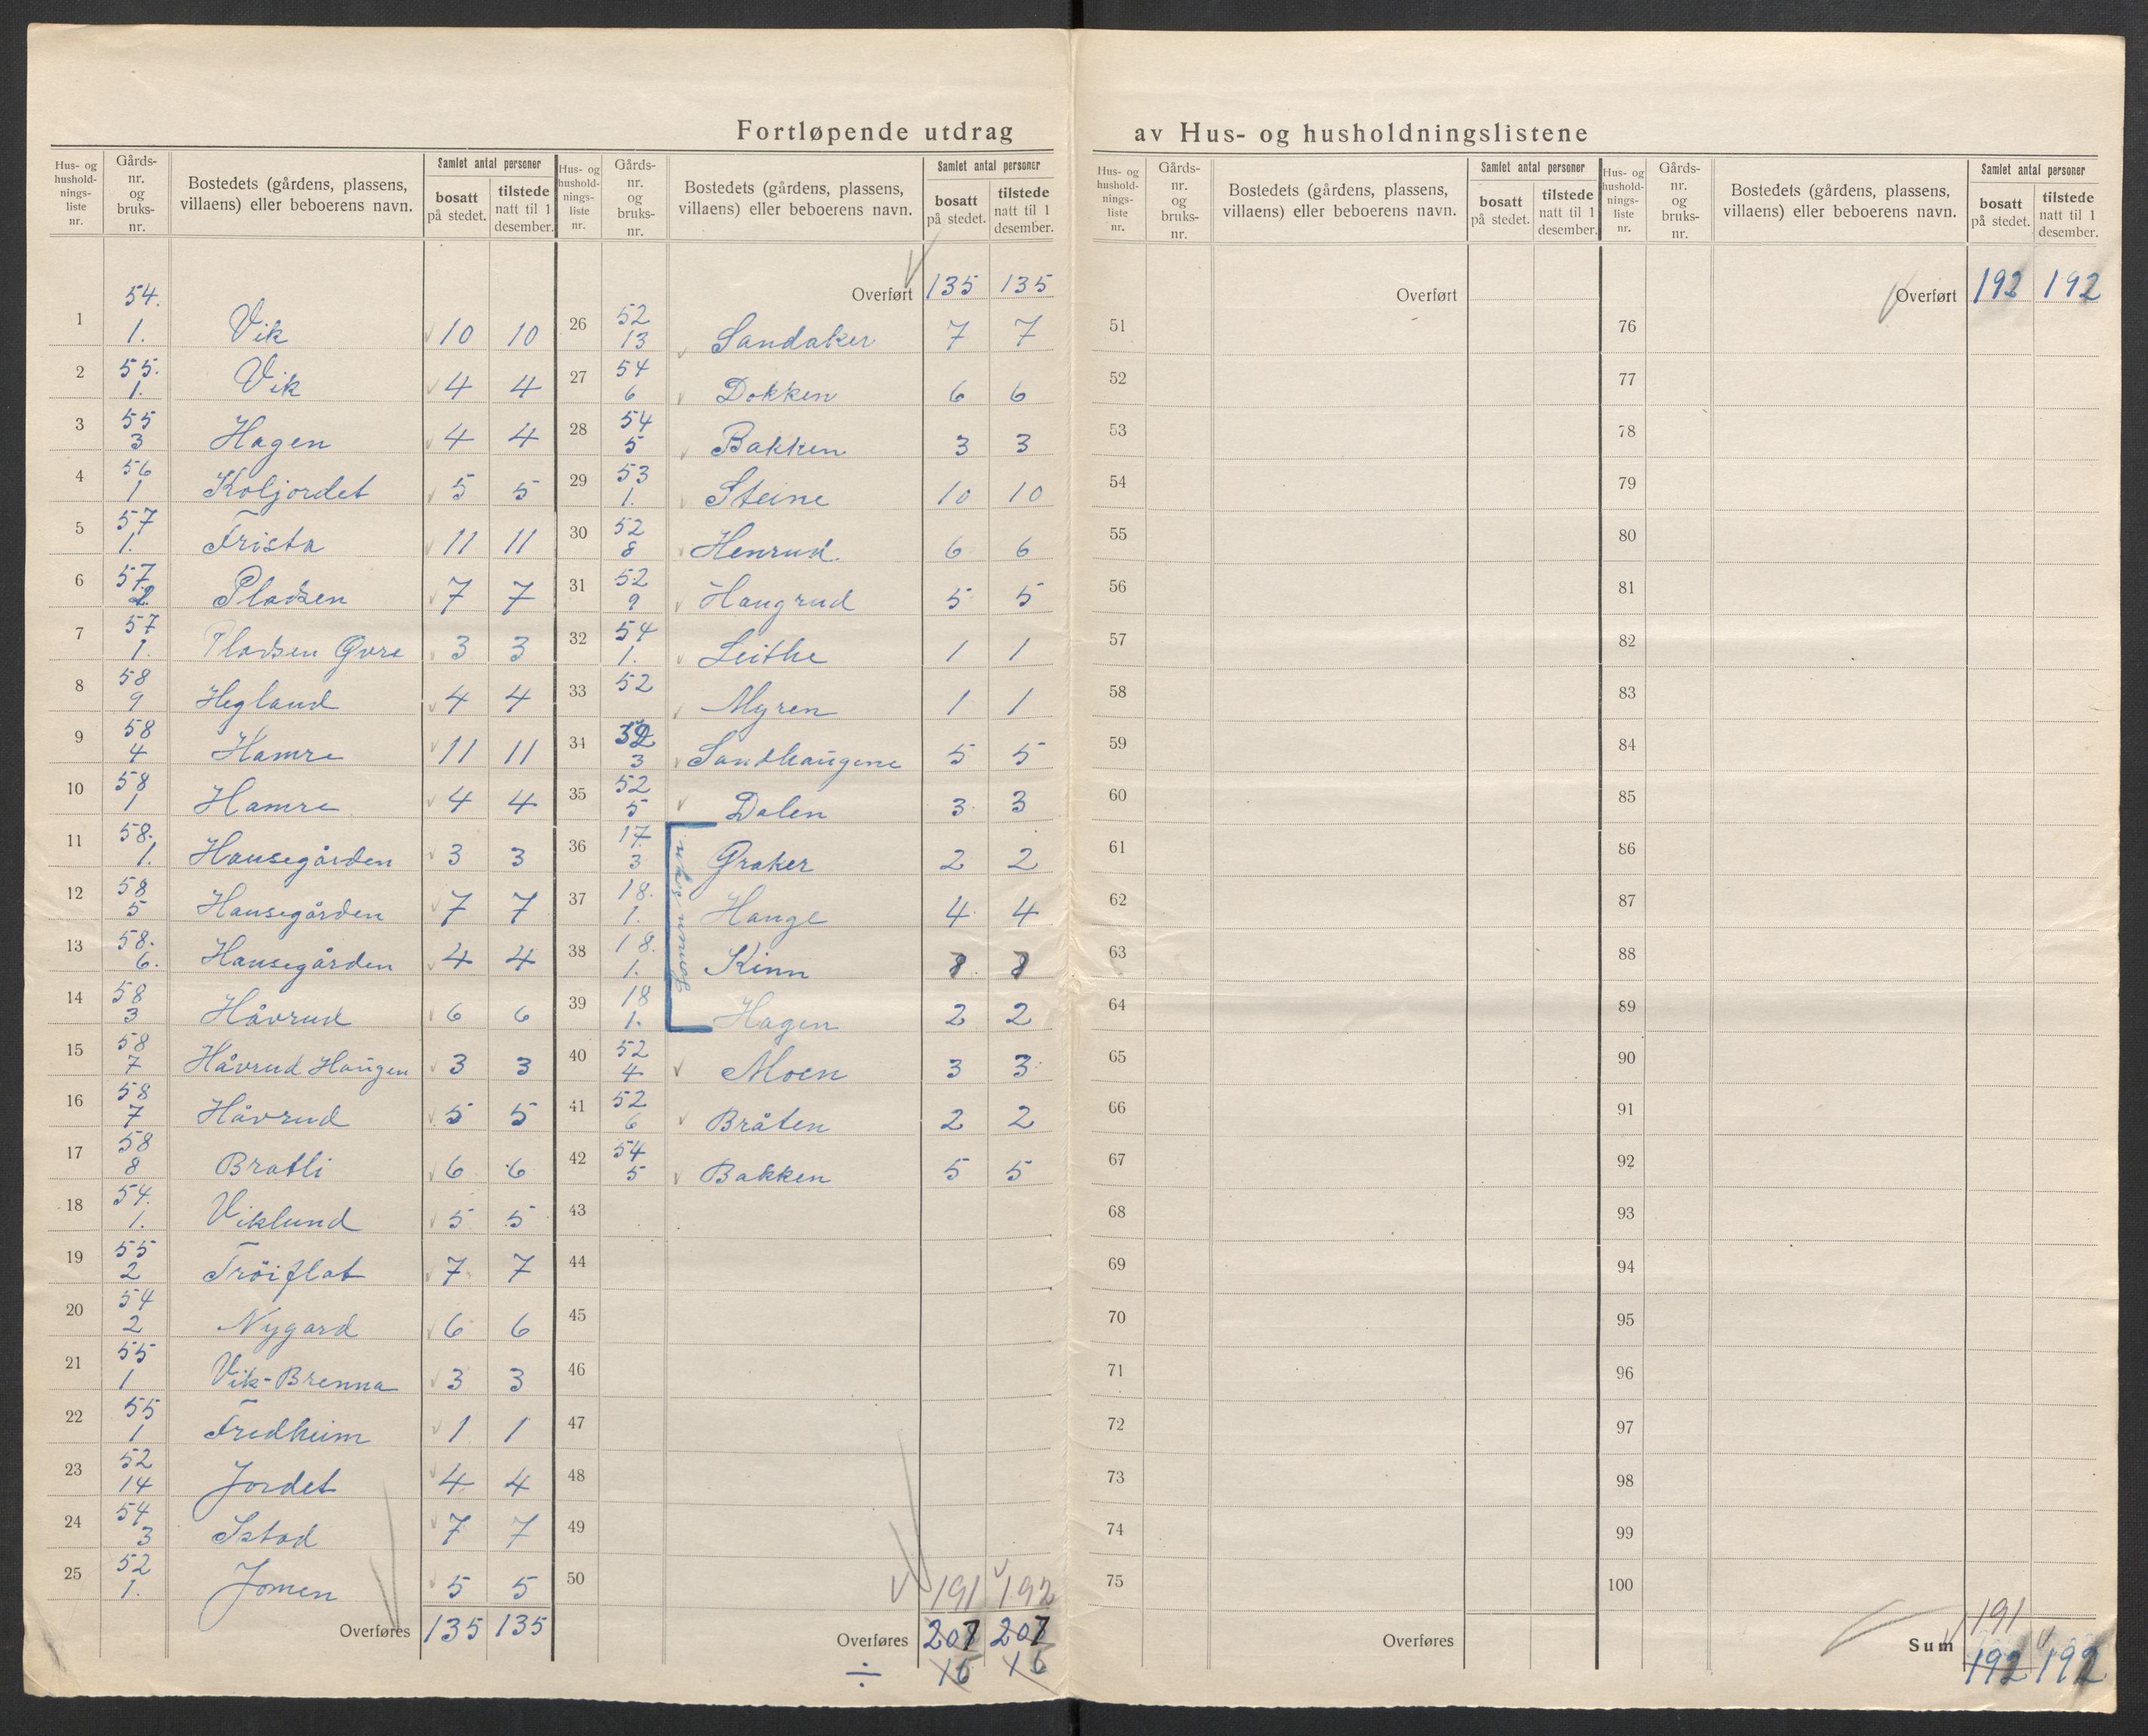 Fortløpende utdrag av Hus- og husholdningslistene
Hus- og hushold-nings-liste nr. | Gårds-nr. og bruks-nr. | Bostedets (gårdens, plassens, villaens) eller beboerens navn. | Samlet antal personer | bosatt på stedet. | tilstede natt til 1 desember.
1 | 54. 1. | Vik | 10 | 10
2 | 55. 1. | Vik | 4 | 4
3 | 55 3 | Hagen | 4 | 4
4 | 56 1 | Koljordet | 5 | 5
5 | 57 1. | Trista | 11 | 11
6 | 57. 2. | Pladsen | 7 | 7
7 | 57 1. | Pladsen Øvre | 3 | 3
8 | 58 9 | Hegland | 4 | 4
9 | 58 4 | Hamre | 11 | 11
10 | 58 1 | Hamre | 4 | 4
11 | 58. 1. | Hausegården | 3 | 3
12 | 58 5 | Hausegården | 7 | 7
13 | 58. 6. | Hausegården | 4 | 4
14 | 58 3 | Håvrud | 6 | 6
15 | 58 7 | Håvrud Haugen | 3 | 3
16 | 58 7 | Håvrud | 5 | 5
17 | 58 8 | Bratli | 6 | 6
18 | 54. 1. | Viklund | 5 | 5
19 | 55 2 | Tröiflat | 7 | 7
20 | 54 2 | Nygard | 6 | 6
21 | 55 1 | Vik-Brenna | 3 | 3
22 | 55 1 | Fredheim | 1 | 1
23 | 52 14 | Jordet | 4 | 4
24 | 54 3 | Istad | 7 | 7
25 | 52 1. | Jomen | 5 | 5
Overføres | 135 | 135
Hus- og hushold-nings-liste nr. | Gårds-nr. og bruks-nr. | Bostedets (gårdens, plassens, villaens) eller beboerens navn. | Samlet antal personer | bosatt på stedet. | tilstede natt til 1 desember.
Overført | 135 | 135
26 | 52 13 | Sandaker | 7 | 7
27 | 54 6 | Dokken | 6 | 6
28 | 54 5 | Bakken | 3 | 3
29 | 53 1. | Steine | 10 | 10
30 | 52 8 | Henrud. | 6 | 6
31 | 52 9 | Haugrud | 5 | 5
32 | 54 1. | Leithe | 1 | 1
33 | 52 | Myren | 1 | 1
34 | 52 3 | Sandhaugene | 5 | 5
35 | 52 5 | Dalen | 3 | 3
36 | 17. 3 | Graker | 2 | 2
37 | 18. 1. | Hauge | 4 | 4
38 | 18. 1. | Kinn | 8 | 8
39 | 18 1. | Hagen | 2 | 2
40 | 52 4 | Moen | 3 | 3
41 | 52 6 | Bråten | 2 | 2
42 | 54 5 | Bakken | 5 | 5
43
44
45
46
47
48
49
50
191 192
Overføres | 207 | 207
÷ 16 16
Hus- og hushold-nings-liste nr. | Gårds-nr. og bruks-nr. | Bostedets (gårdens, plassens, villaens) eller beboerens navn. | Samlet antal personer | bosatt på stedet. | tilstede natt til 1 desember.
Overført
51
52
53
54
55
56
57
58
59
60
61
62
63
64
65
66
67
68
69
70
71
72
73
74
75
Overføres
Hus- og hushold-nings-liste nr. | Gårds-nr. og bruks-nr. | Bostedets (gårdens, plassens, villaens) eller beboerens navn. | Samlet antal personer | bosatt på stedet. | tilstede natt til 1 desember.
Overført | 192 | 192
76
77
78
79
80
81
82
83
84
85
86
87
88
89
90
91
92
93
94
95
96
97
98
99
100
191
Sum | 192 | 192